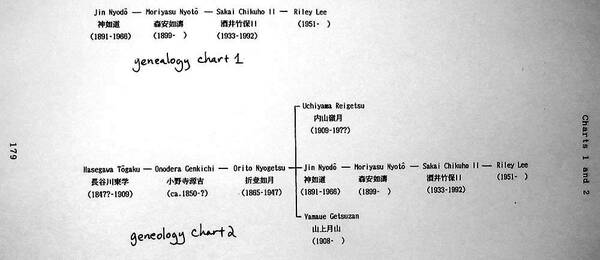 Jin Nyodō — Moriyasu Nyotō — Sakai Chikuho II — Riley Lee
神如道 森安如濤 酒井竹保II (1951- )
(1891-1966) (1899- ) (1933-1992)
genealogy chart 1
Uchiyama Reigetsu
内山嶺月
(1909-19??)
Hasegawa Tōgaku — Onodera Genkichi — Orito Nyogetsu — Jin Nyodō — Moriyasu Nyotō — Sakai Chikuho II — Riley Lee
長谷川東学 小野寺源吉 折登如月 神如道 森安如濤 酒井竹保II (1951- )
(184??-1909) (ca.1850-?) (1865-1947) (1891-1966) (1899- ) (1933-1992)
Yamaue Getsuzan
山上月山
(1908- )
geneology chart 2
179
Charts 1 and 2